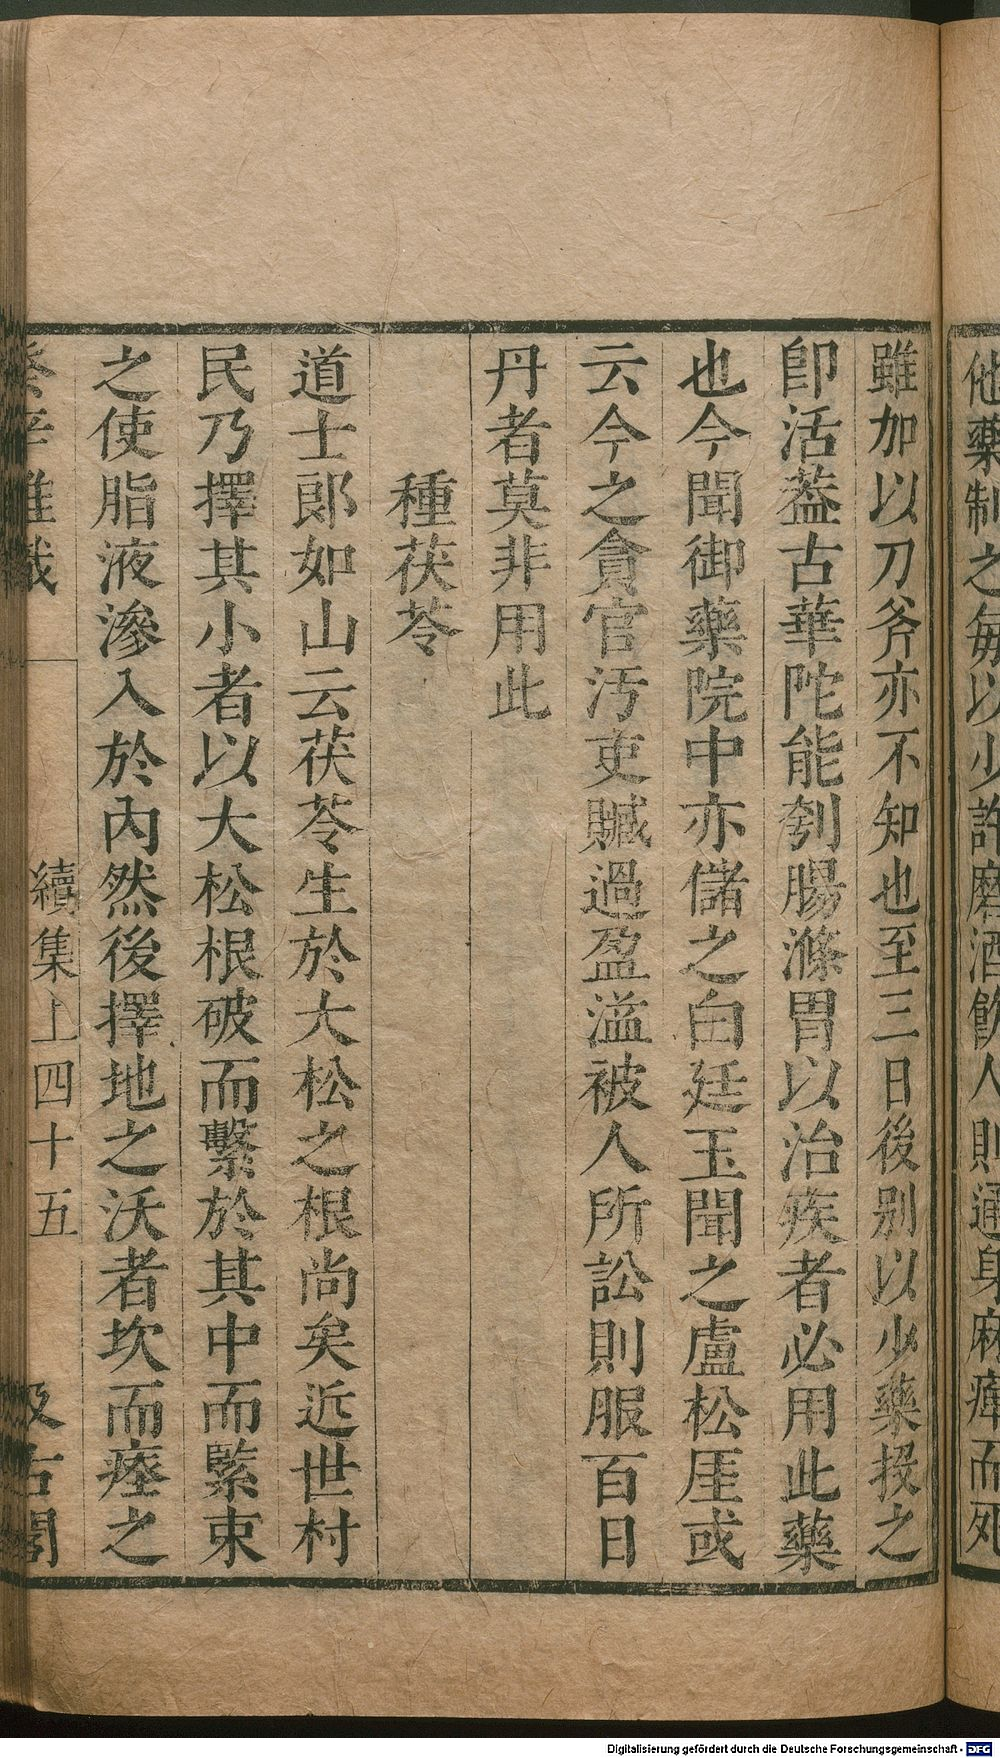 他藥制之每以少許磨酒飲人則通身麻痺而死
雖加以刀斧亦不知也至三日後别以少藥投之
卽活葢古華陀能刳腸滌胃以治疾者必用此藥
也今聞御藥院中亦儲之白廷玉聞之盧松厓或
云今之貪官汚吏贓過盈溢被人所訟則服百日
丹者莫非用此
種茯苓
道士郎如山云茯苓生於大松之根尚矣近世村
民乃擇其小者以大松根破而繫於其中而緊束
之使脂液滲入於內然後擇地之沃者坎而瘞之
癸辛雜識
續集上四十五
汲古閣
Digitalisierung gefördert durch die Deutsche Forschungsgemeinschaft - DFG